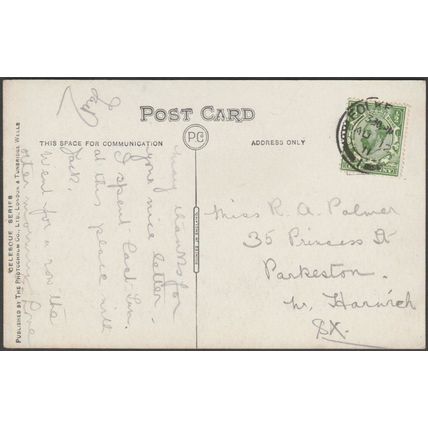 POST CARD
PC
THIS SPACE FOR COMMUNICATION
ADDRESS ONLY
Many thanks for
your nice letter.
I spent last Sun.
at this place with
Jack.
Went for a row the
other morning. Love
Ted
Miss R. A. Palmer
35 Princess St
Parkeston.
nr. Harwich
SX.
FOLKE
CELESQUE SERIES
PUBLISHED BY THE PHOTOCHROM CO., LTD. LONDON & TUNBRIDGE WELLS